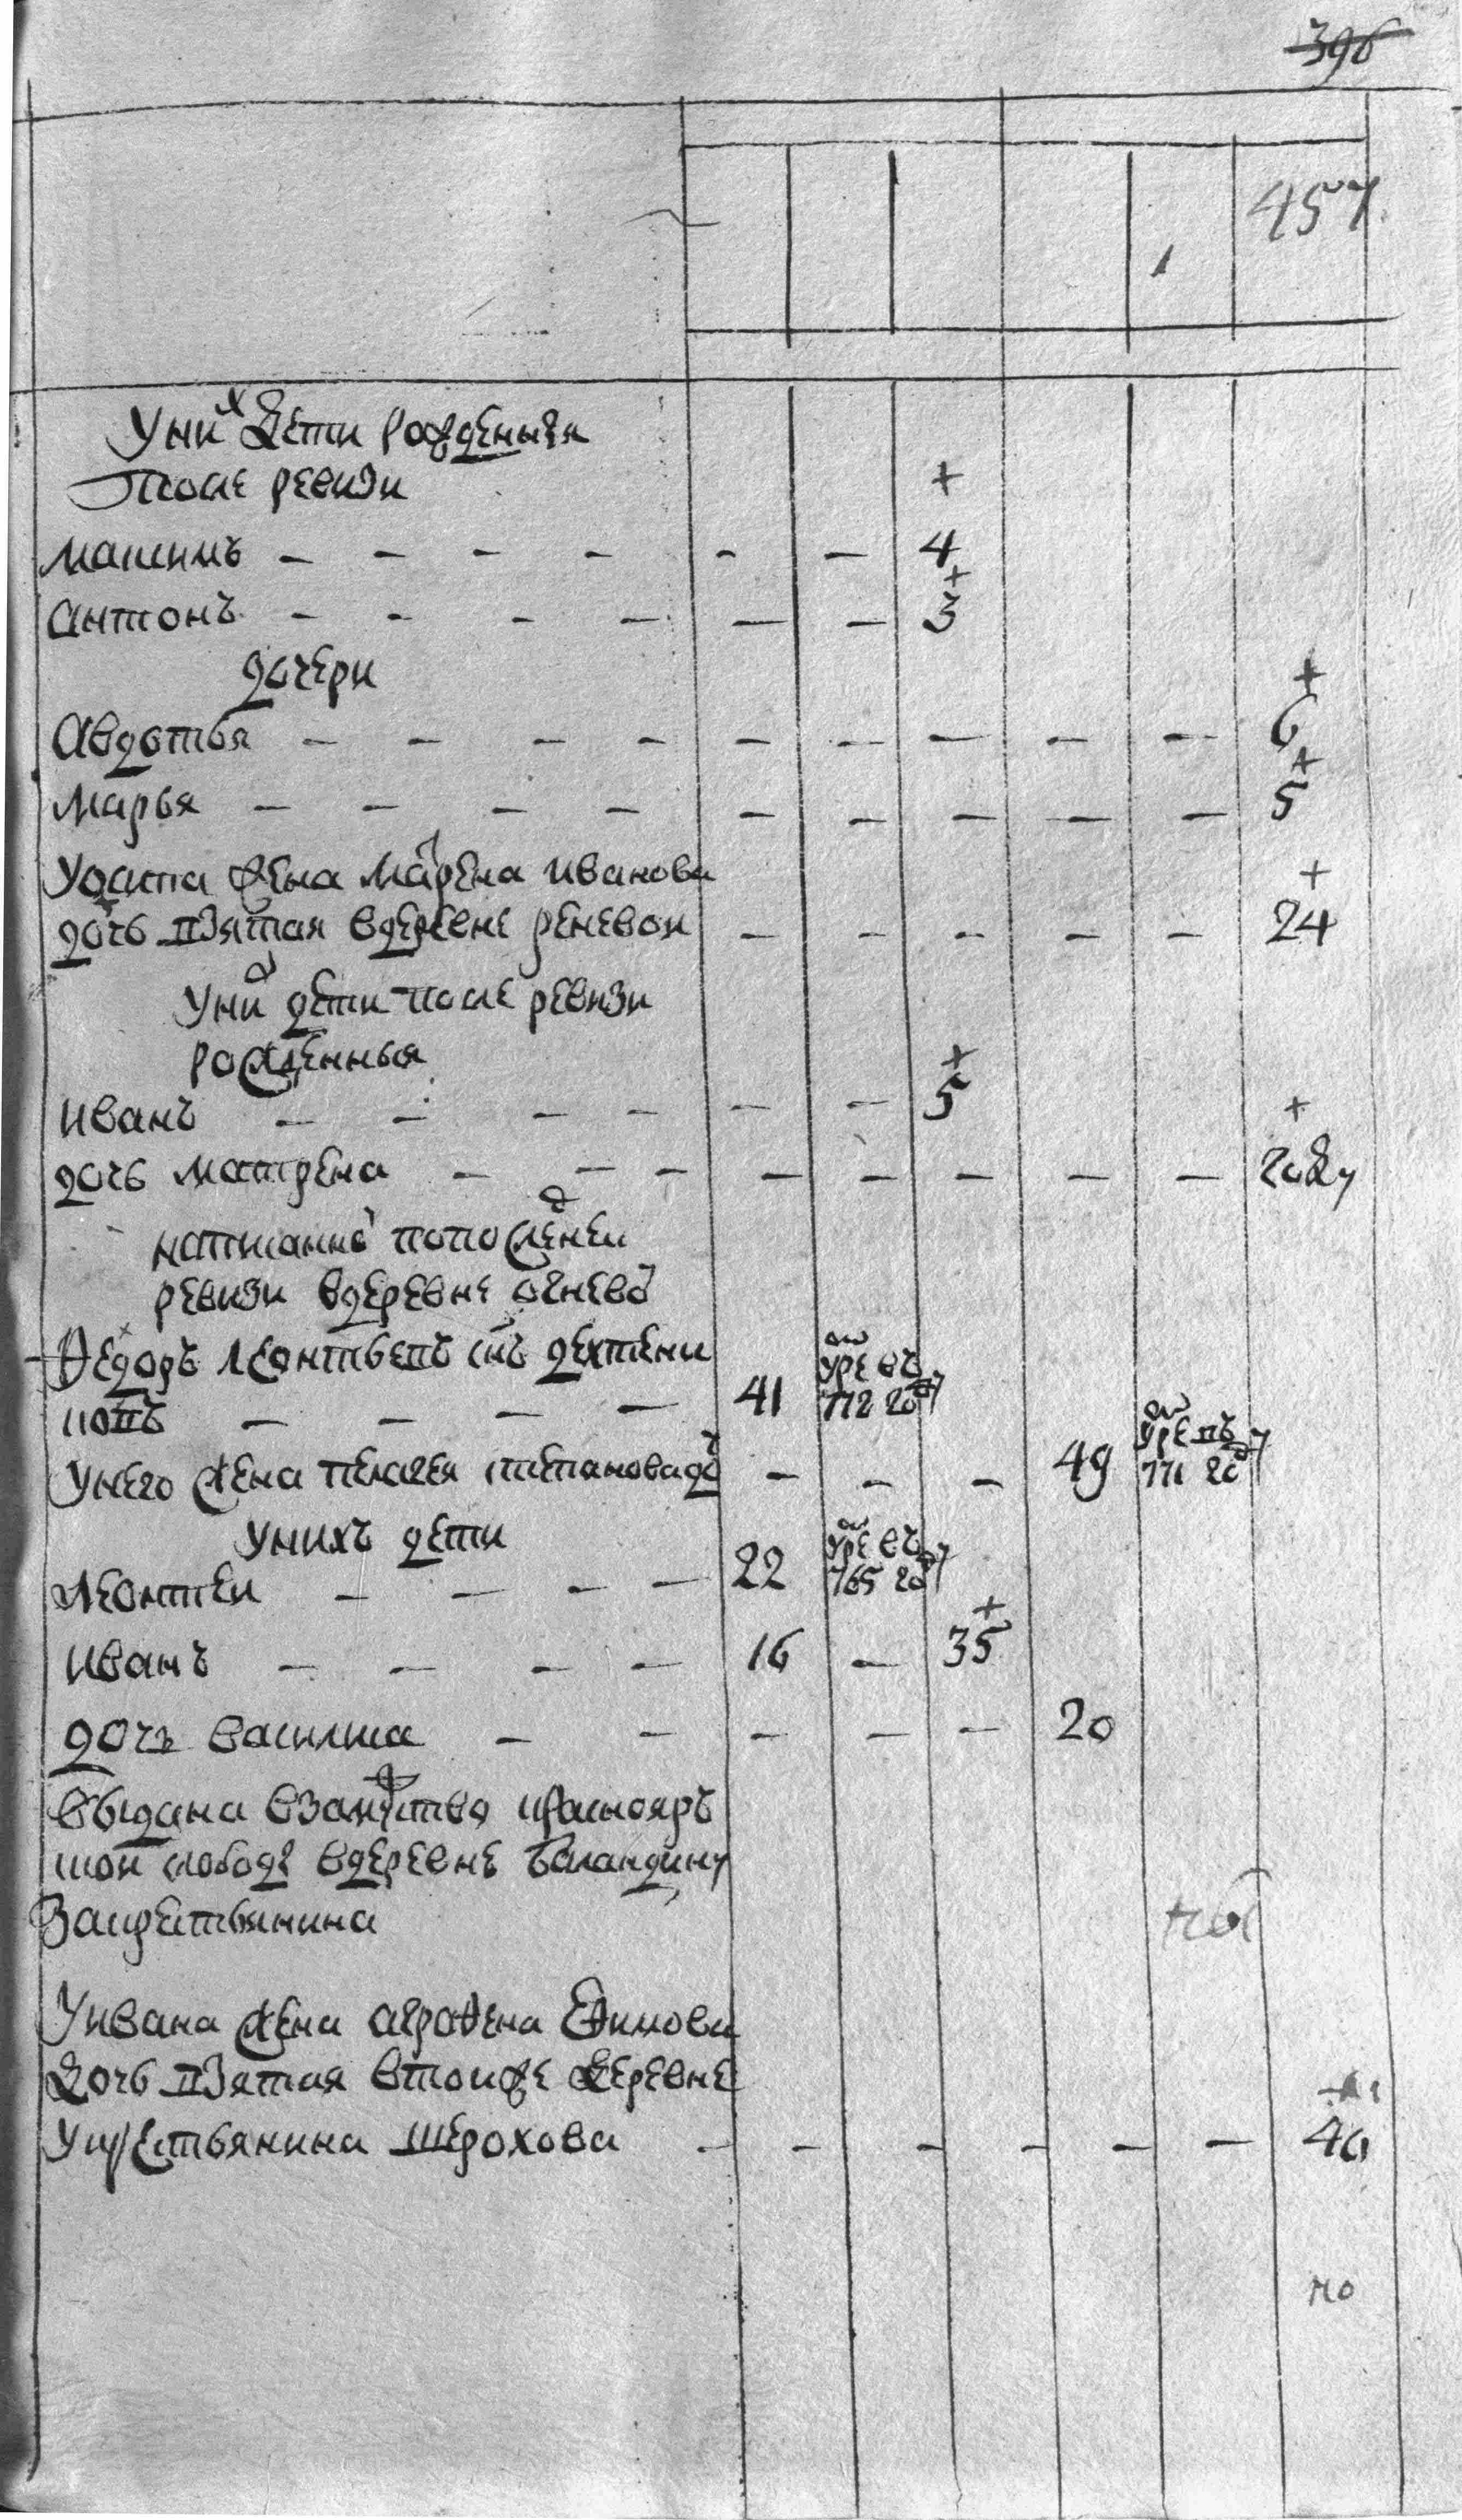 396
457
У них дети рожденныя
после ревизи
Максимъ — — — — — — 4
Антонъ — — — — — — 3
дочери
Авдотья — — — — — — — — — 6
Марья — — — — — — — — — 5
жена Матрена Иванова
дочь взятая в деревне Реневой — — — — — 24
У них дети после ревизи
рожденныя
Иванъ — — — — — — 5
дочь Матрена — — — — — — — — году
написанной по последней
ревизи в деревне Огневой
Федоръ Леонтьевъ снъ Дехтени
ковъ — — — — 41 умре въ 772 году
У него жена Пелагея Степанова дочь — — — 49 умре въ 771 году
У нихъ дети
Леонтеи — — — — 22 умре въ 765 году
Иванъ — — — — 16 — 35
дочь Василиса — — — — — 20
выдана в замужство Краснояръ
скои слободе в деревне Баландину
за крестьянина
У Ивана жена Аграфена Ефимова
дочь взятая в тои же деревне
у крестьянина Шерохова — — — — — — 40